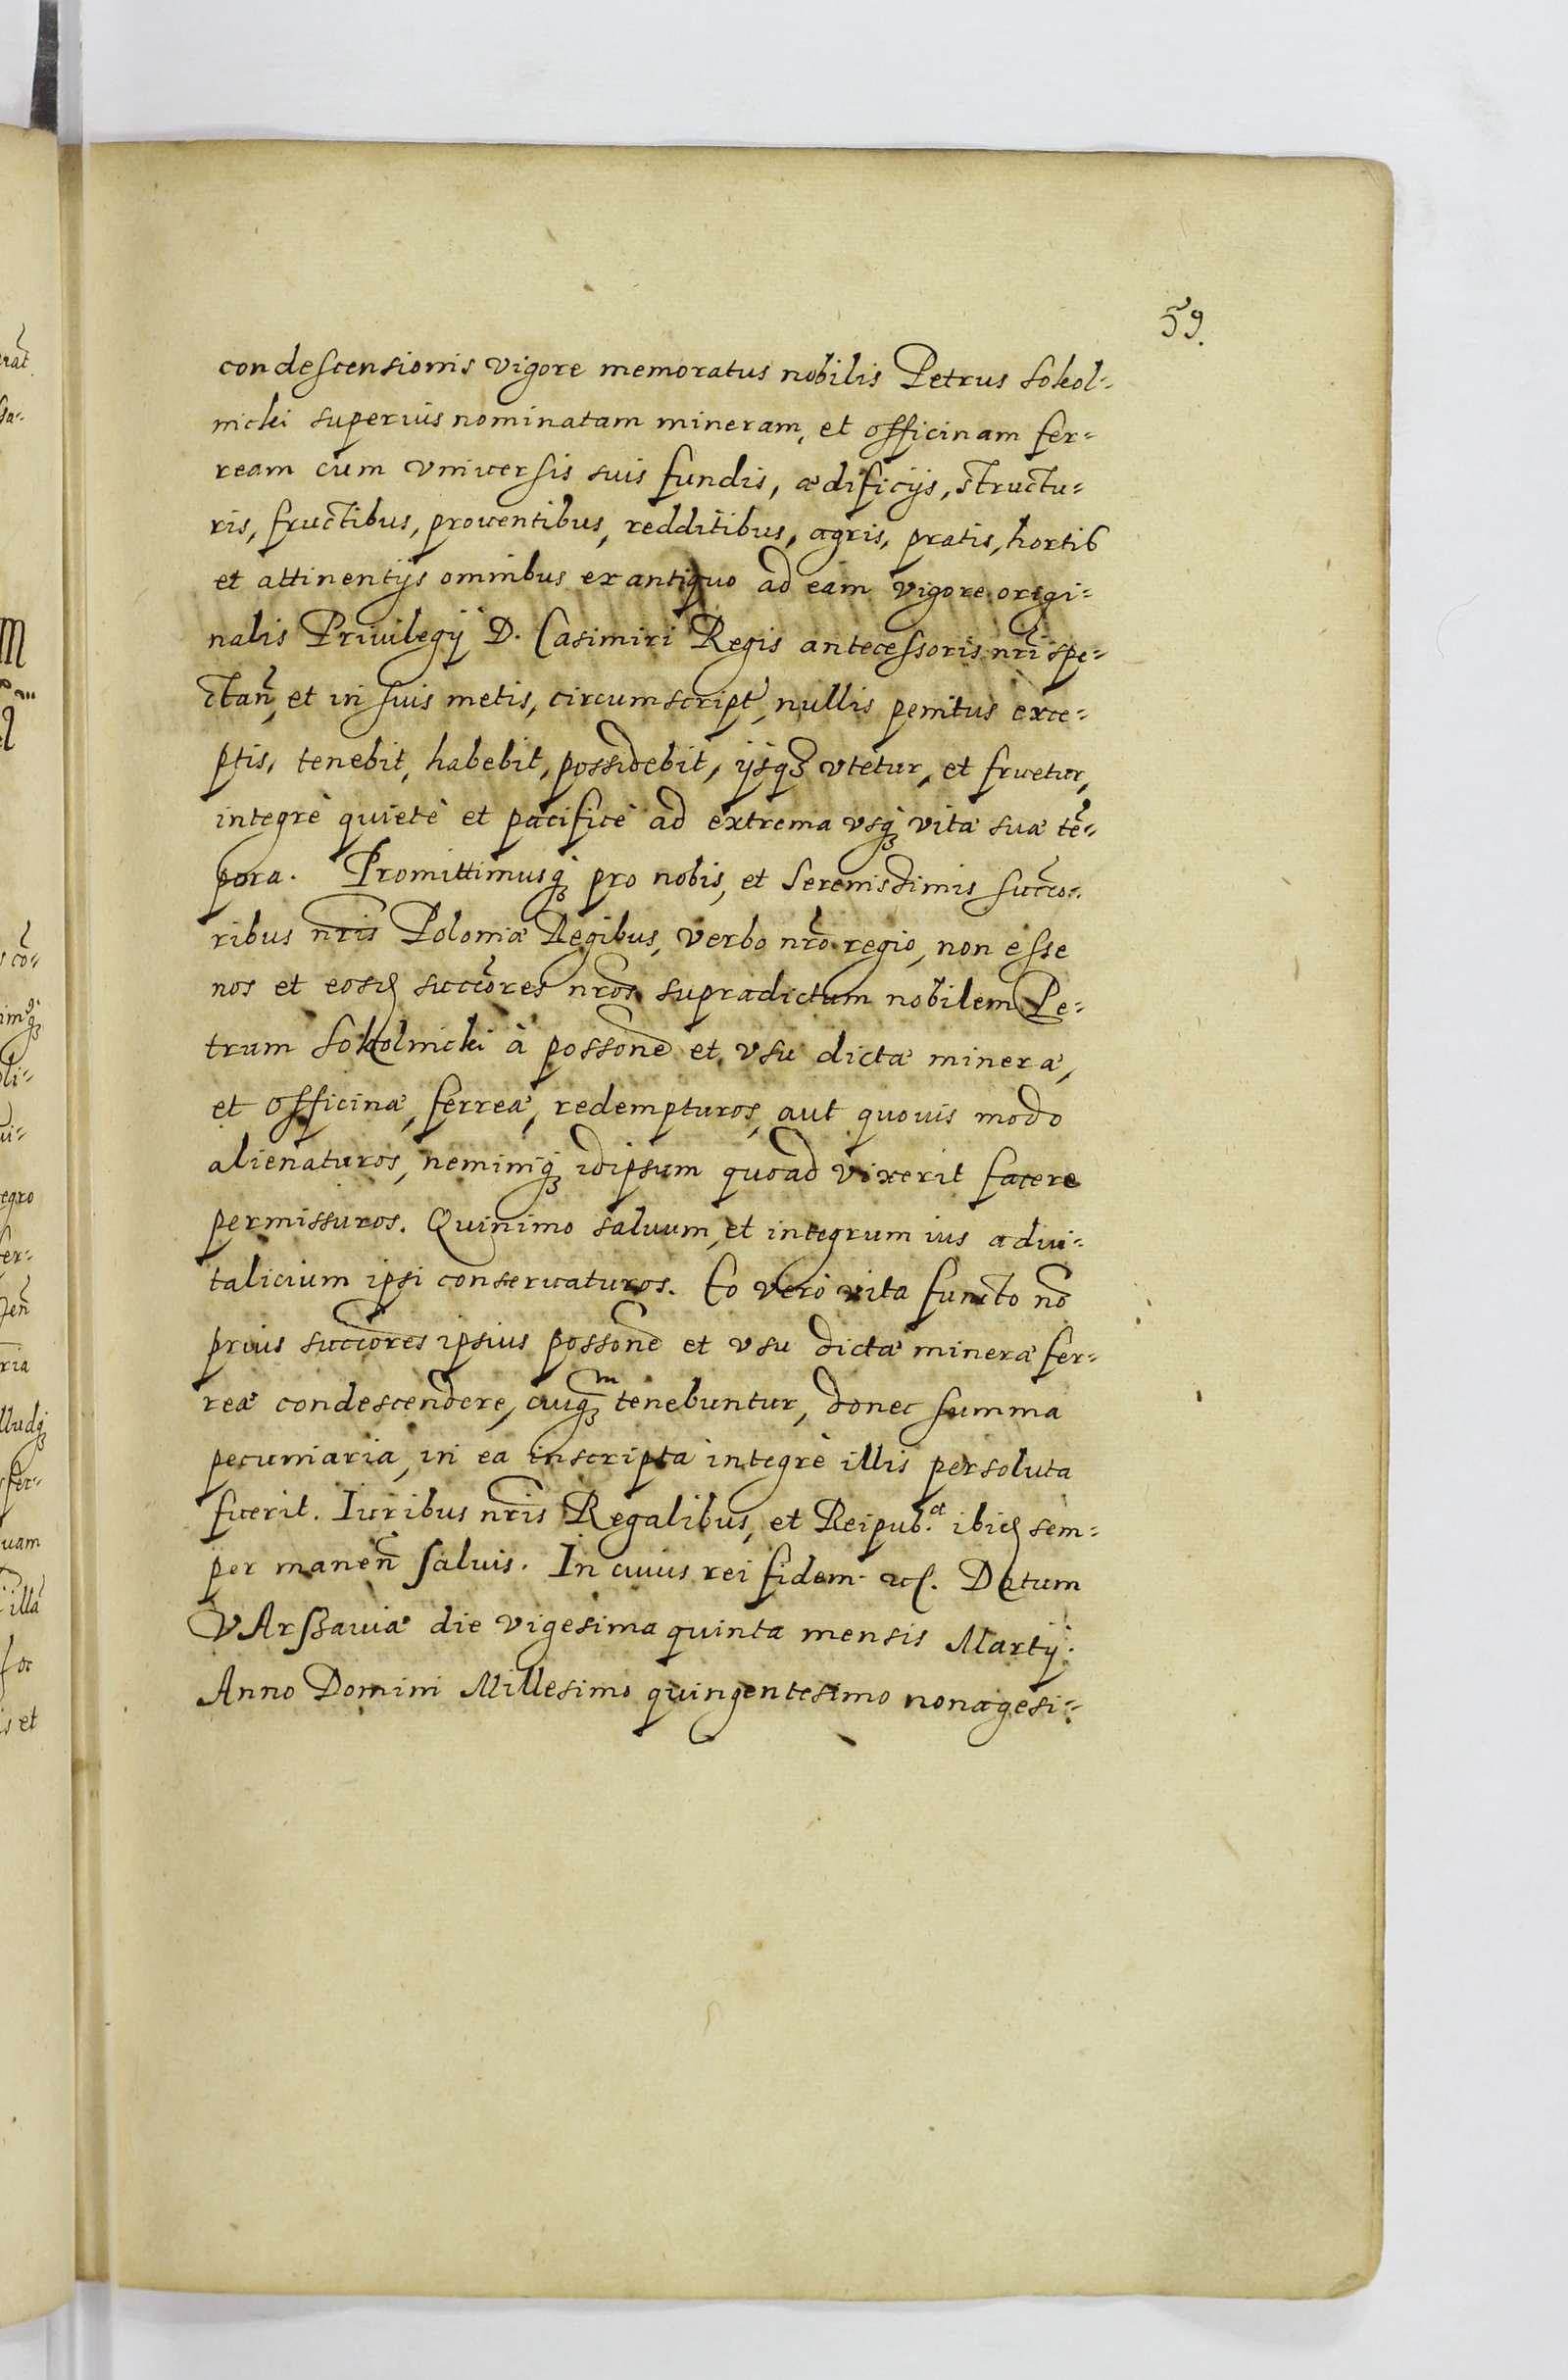 59.
condescensionis vigore memoratus nobilis Petrus Sokol=
nicki superius nominatam mineram, et officinam fer=
ream cum vniuersis suis fundis, ædificijs, structu=
ris, fructibus, prouentibus, redditibus, agris, pratis, hortis
et attinentijs omnibus ex antiquo ad eam vigore origi=
nalis Priuilegij D. Casimiri Regis antecessoris nr̃i spe=
ctañ, et in suis metis, circumscript̃, nullis penitus exce=
ptis, tenebit, habebit, possidebit, ijsq3 vtetur, et fruetur,
integrè quietè et pacificè ad extrema vsq3 vitæ suæ tẽ=
pora. Promittimusq3 pro nobis, et Serenissimis succo=
ribus nr̃is Poloniæ Regibus, verbo nr̃o regio, non esse
nos et eosd succores nr̃os supradictum nobilem Pe=
trum Sokolnicki à possone et vsu dictæ mineræ,
et officinæ, ferreæ, redempturos, aut quouis modo
alienaturos, neminiq3 idipsum quoad vixerit facere
permissuros. Quinimo saluum, et integrum ius adui=
talicium ipsi conseruaturos. Eo verò vita functo nõ
prius succores ipsius possone et vsu dictæ mineræ fer=
reæ condescendere, cuiq3m tenebuntur, donec summa
pecuniaria, in ea inscripta integrè illis persoluta
fuerit. Iuribus nr̃is Regalibus, et Reipub.æ ibid sem=
per maneñ saluis. In cuius rei fidem. etc. Datum
VArssauiæ die vigesima quinta mensis Martij.
Anno Domini Millesimo quingentesimo nonagesi=